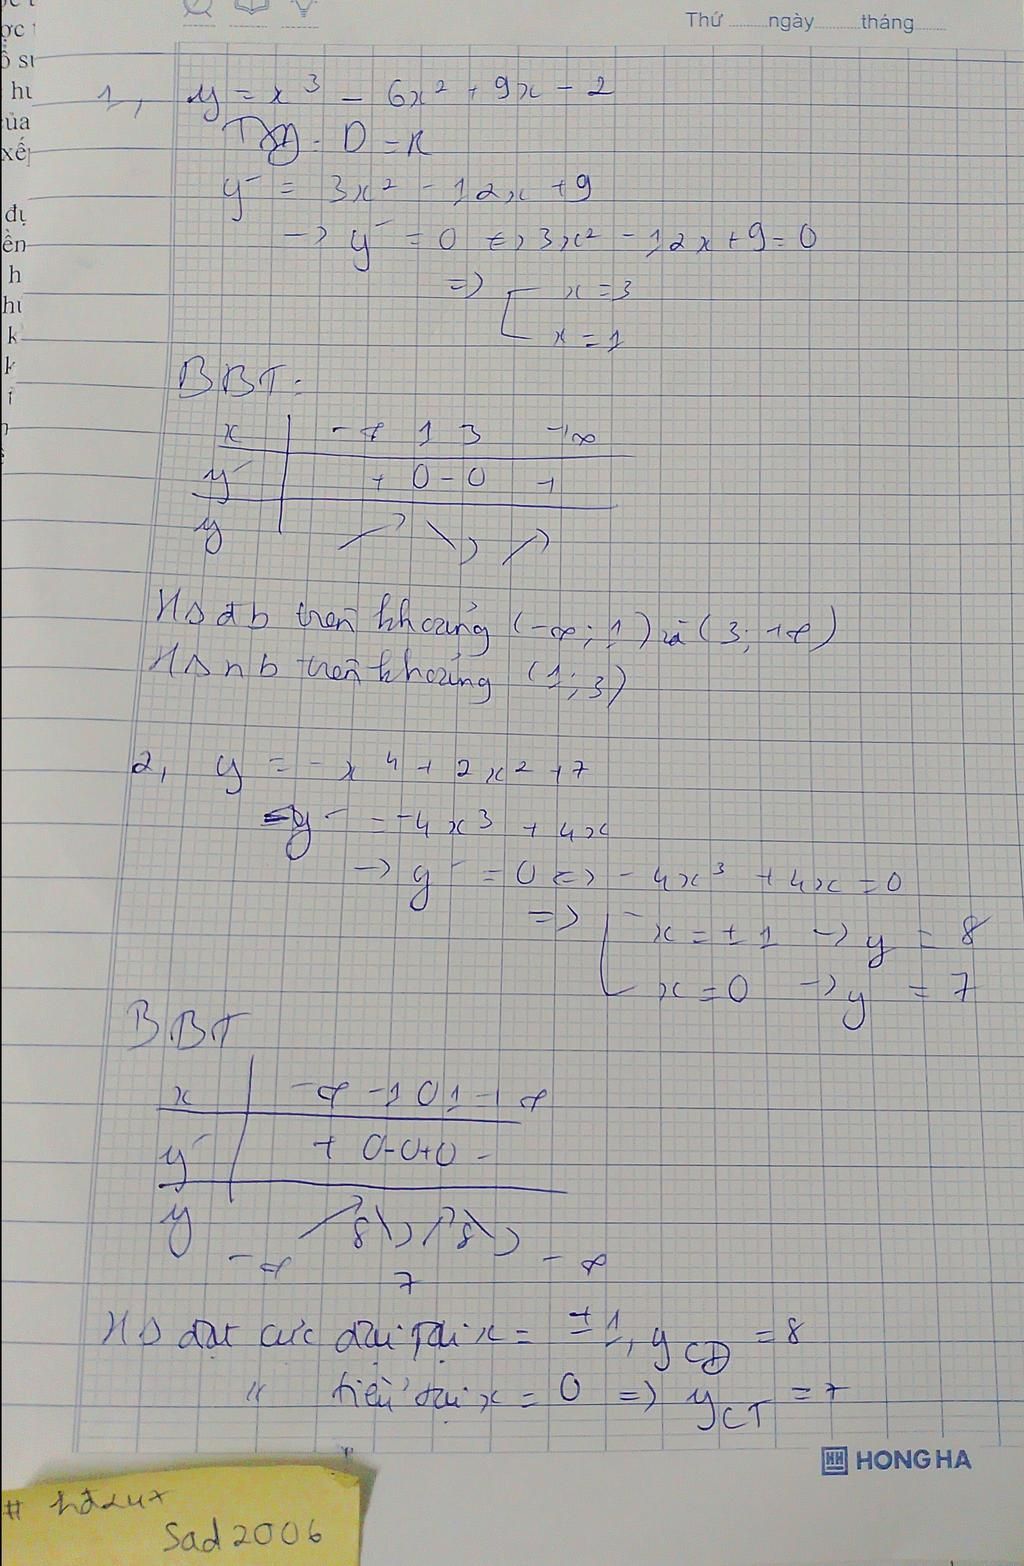 Thứ ........ngày..........tháng........
1, y = x³ - 6x² + 9x - 2
TXĐ: D = R
y' = 3x² - 12x + 9
-> y' = 0 <=> 3x² - 12x + 9 = 0
=> [ x = 3
x = 1
BBT:
x | -∞ 1 3 +∞
y' | + 0 - 0 +
y | ↗ ↘ ↗
HS đb trên khoảng (-∞; 1) và (3; +∞)
HS nb trên khoảng (1; 3)
2, y = -x⁴ + 2x² + 7
y' = -4x³ + 4x
-> y' = 0 <=> -4x³ + 4x = 0
=> [ x = ±1 -> y = 8
x = 0 -> y = 7
BBT
x | -∞ -1 0 1 +∞
y' | + 0 - 0 + 0 -
y | ↗ 8 ↘ ↗ 8 ↘
-∞ 7 -∞
HS đạt cực đại tại x = ±1, yCĐ = 8
" tiểu tại x = 0 => yCT = 7
HONG HA
Sad2006